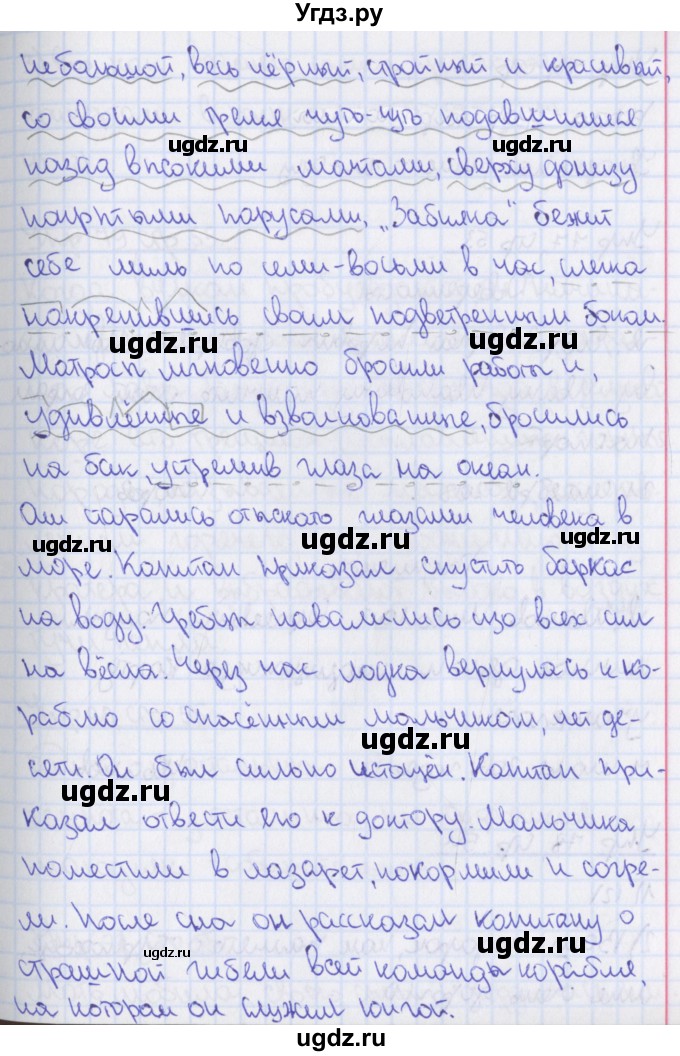 Угдз.ру
небольшой, весь чёрный, стройный и красивый,
со своими тремя чуть-чуть подавшимися
ugdz.ru ugdz.ru
назад высокими мачтами, сверху донизу
покрытыми парусами, „Забияка" бежит
себе миль по семи-восьми в час, слегка
накренившись своим подветренным боком.
ugdz.ru ugdz.ru
Матросы мгновенно бросили работы и,
удивлённые и взволнованные, бросились
на бак, устремив глаза на океан.
Они старались отыскать глазами человека в
ugdz.ru ugdz.ru ugdz.ru
море. Капитан приказал спустить баркас
на воду. Гребцы навалились изо всех сил
на вёсла. Через час лодка вернулась к ко-
раблю со спасённым мальчиком, лет де-
ugdz.ru
сяти. Он был сильно истощён. Капитан при-
ugdz.ru
казал отвести его к доктору. Мальчика
поместили в лазарет, накормили и согре-
ли. После сна он рассказал капитану о
ugdz.ru ugdz.ru
страшной гибели всей команды корабля,
на котором он служил юнгой.
ugdz.ru